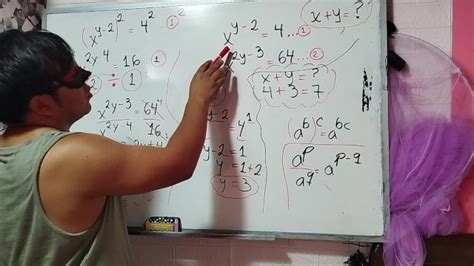 (x^{y-2})^2 = 4^2 ①^2
x^{2y-4} = 16 ①
÷ ÷ ②
x^{2y-3} = 64
x^{2y-4} 16
x^{y-2} = 4 ...①
x^{2y-3} = 64 ...②
x+y = ?
x+y = ?
4+3 = 7
= y^1
y-2 = 1
y = 1+2
y = 3
(a^b)^c = a^{bc}
a^p/a^q = a^{p-q}